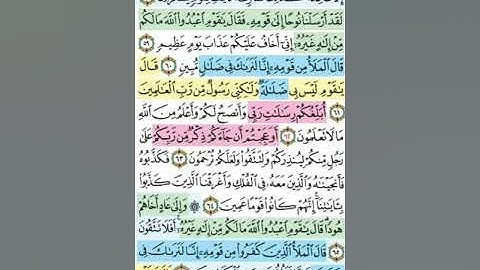 لَقَدْ أَرْسَلْنَا نُوحًا إِلَىٰ قَوْمِهِۦ فَقَالَ يَٰقَوْمِ ٱعْبُدُوا۟ ٱللَّهَ مَا لَكُم
مِّنْ إِلَٰهٍ غَيْرُهُۥٓ إِنِّىٓ أَخَافُ عَلَيْكُمْ عَذَابَ يَوْمٍ عَظِيمٍ ٥٩
قَالَ ٱلْمَلَأُ مِن قَوْمِهِۦٓ إِنَّا لَنَرَىٰكَ فِى ضَلَٰلٍ مُّبِينٍ ٦٠ قَالَ
يَٰقَوْمِ لَيْسَ بِى ضَلَٰلَةٌ وَلَٰكِنِّى رَسُولٌ مِّن رَّبِّ ٱلْعَٰلَمِينَ
٦١ أُبَلِّغُكُمْ رِسَٰلَٰتِ رَبِّى وَأَنصَحُ لَكُمْ وَأَعْلَمُ مِنَ ٱللَّهِ
مَا لَا تَعْلَمُونَ ٦٢ أَوَعَجِبْتُمْ أَن جَآءَكُمْ ذِكْرٌ مِّن رَّبِّكُمْ عَلَىٰ
رَجُلٍ مِّنكُمْ لِيُنذِرَكُمْ وَلِتَتَّقُوا۟ وَلَعَلَّكُمْ تُرْحَمُونَ ٦٣ فَكَذَّبُوهُ
فَأَنجَيْنَٰهُ وَٱلَّذِينَ مَعَهُۥ فِى ٱلْفُلْكِ وَأَغْرَقْنَا ٱلَّذِينَ كَذَّبُوا۟
بِـَٔايَٰتِنَآ إِنَّهُمْ كَانُوا۟ قَوْمًا عَمِينَ ٦٤ ۞ وَإِلَىٰ عَادٍ أَخَاهُمْ
هُودًا قَالَ يَٰقَوْمِ ٱعْبُدُوا۟ ٱللَّهَ مَا لَكُم مِّنْ إِلَٰهٍ غَيْرُهُۥٓ أَفَلَا تَتَّقُونَ
٦٥ قَالَ ٱلْمَلَأُ ٱلَّذِينَ كَفَرُوا۟ مِن قَوْمِهِۦٓ إِنَّا لَنَرَىٰكَ فِى